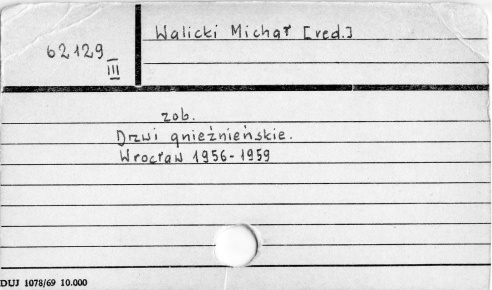 Walicki Michał [red.]
62129
III
zob.
Drzwi gnieźnieńskie.
Wrocław 1956-1959
DUJ 1078/69 10.000